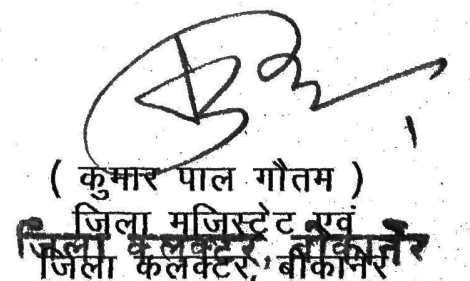 ( कुमार पाल गौतम )
जिला मजिस्ट्रेट एवं
जिला कलक्टर, बीकानेर
जिला कलक्टर, बीकानेर